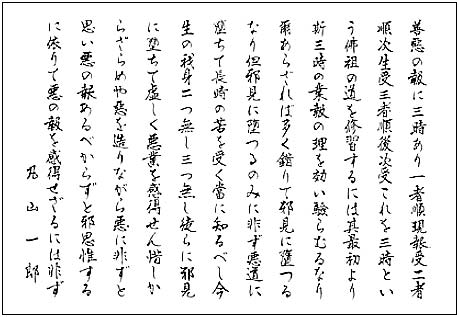 善悪の報に三時あり一者順現報受二者
順次生受三者順後次受これを三時とい
う佛祖の道を修習するには其最初より
斯三時の業報の理を効い験らむるなり
爾あらざれば多く錯りて邪見に堕つる
なり但邪見に堕つるのみに非ず悪道に
堕ちて長時の苦を受く當に知るべし今
生の我身二つ無し三つ無し徒らに邪見
に堕ちて虚しく悪業を感得せん惜しか
らざらめや悪を造りながら悪に非ずと
思い悪の報あるべからずと邪思惟する
に依りて悪の報を感得せざるには非ず
山一郎